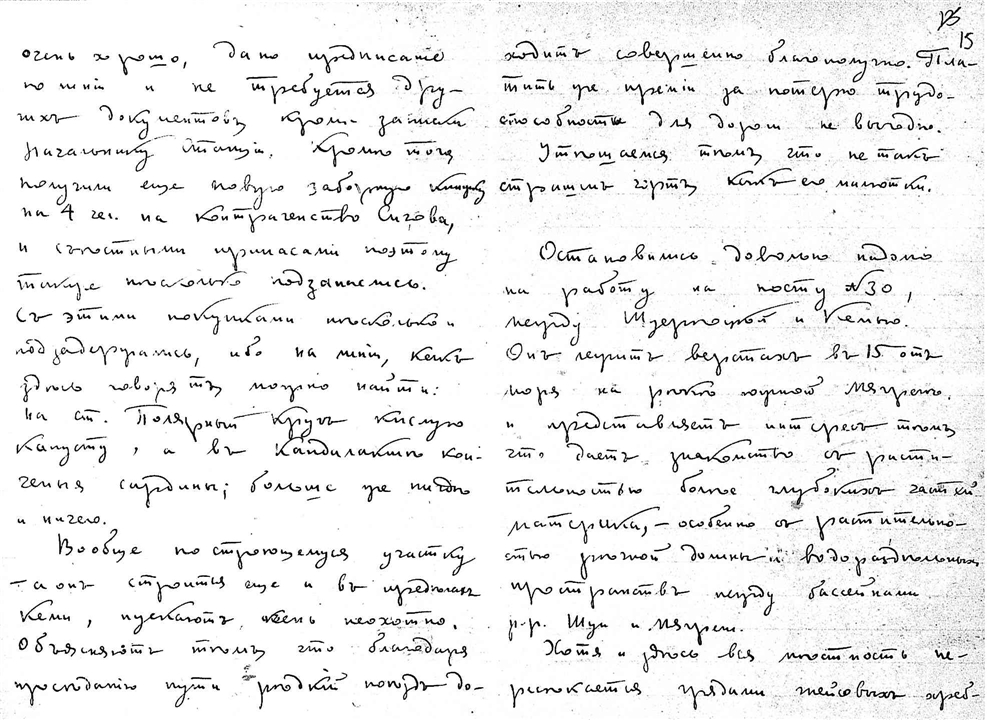 15
очень хорошо, дано предписаніе
по линіи и не требуется дру-
гихъ документовъ кромѣ записки
начальнику станціи. Кромѣ того
получили еще новую заборную книжку
на 4 чел. на контрагентство Сигова,
и съѣстными припасами поэтому
также нѣсколько подзапаслись.
Съ этими покупками нѣсколько и
подзадержались, ибо на линіи, какъ
здѣсь говорятъ, можно найти:
на ст. Полярный Кругъ кислую
капусту, а въ Кандалакшѣ коп-
ченыя сардины; больше уже нигдѣ
и ничего.
Вообще по строющемуся участку
– а онъ строится еще и въ предѣлахъ
Кеми, пускаютъ очень неохотно.
Объясняютъ тѣмъ что благодаря
просѣданію пути рѣдкій поѣздъ до-
ходитъ совершенно благополучно. Пла-
тить же преміи за потерю трудо-
способности для дороги не выгодно.
Утѣшаемся тѣмъ что не такъ
страшенъ чортъ какъ его малютки.
Остановились довольно надолго
на работу на посту №30,
между Шуерѣцкой и Кемью.
Онъ лежитъ верстахъ въ 15 отъ
моря на рѣкѣ южной Мягрекѣ.
и представляетъ интересъ тѣмъ
что даетъ знакомство съ расти-
тельностью болѣе глубокихъ частей
материка, – особенно съ растительно-
стью рѣчной долины и водораздѣльныхъ
пространствъ между бассейнами
р.р. Шуи и Мягреки.
Хотя и здѣсь вся мѣстность пе-
ресѣкается грядами гнейсовыхъ хреб-